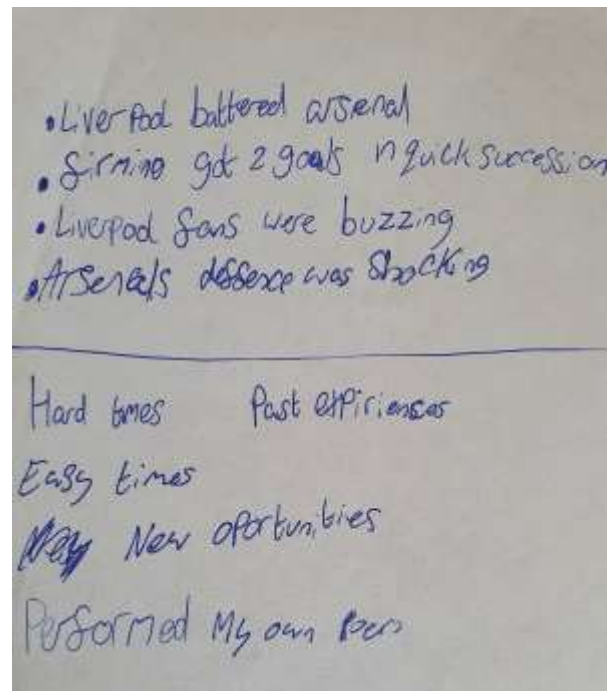 • Liverpool battered arsenal
• firmino got 2 goals n quick succession
• Liverpool fans were buzzing
• Arsenals deffence was shocking
Hard times Past expiriences
Easy times
New oportunities
Performed My own Poem